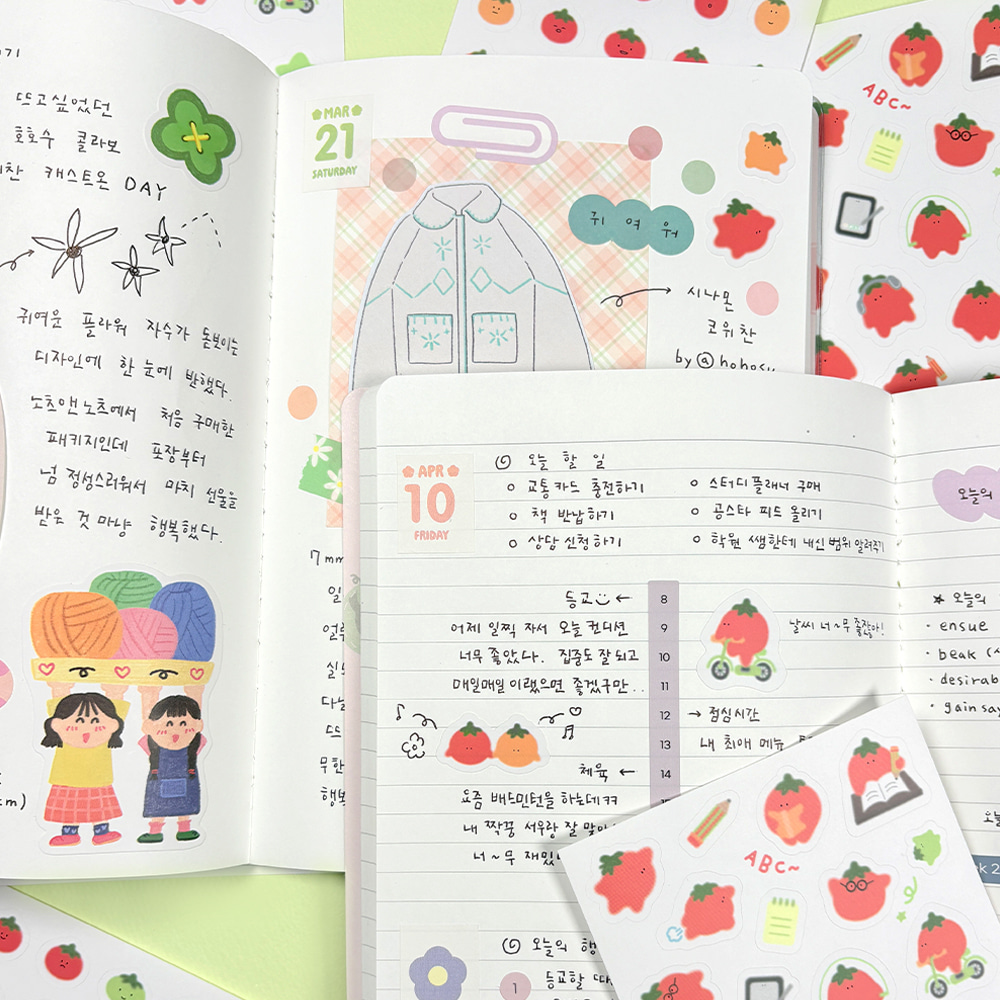 뜨고싶었던
호호수 콜라보
캐스트온 DAY
귀여운 플라워 자수가 돋보이는
디자인에 한 눈에 반했다.
노츠앤노츠에서 처음 구매한
패키지인데 포장부터
넘 정성스러워서 마치 선물을
받은 것 마냥 행복했다.
MAR
21
SATURDAY
귀여워
시나몬
코위찬
by @hohosu
7mm
APR
10
FRIDAY
오늘 할 일
교통카드 충전하기
책 반납하기
상담 신청하기
스터디플래너 구매
공스타 피드 올리기
학원 쌤한테 내신 범위 알려주기
8
9
10
11
12
13
14
등교 ←
어제 일찍 자서 오늘 컨디션
너무 좋았다. 집중도 잘 되고
매일매일 이랬으면 좋겠구만..
체육 ←
요즘 배드민턴을 하는데ㅋㅋ
내 짝꿍 서우랑 잘
너~무 재밌
날씨 너~무 좋잖아!
→ 점심시간
내 최애 메뉴
오늘의
★ 오늘의
· ensue
· beak
· desirab
· gainsay
오늘의 행
1
등교할 때
ABC~
ABC~